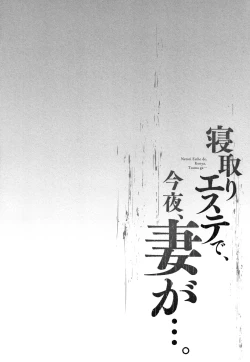 寝取り
エステで、
Netori Esthe de,
Konya,
Tsuma ga…
今夜、
妻が…。